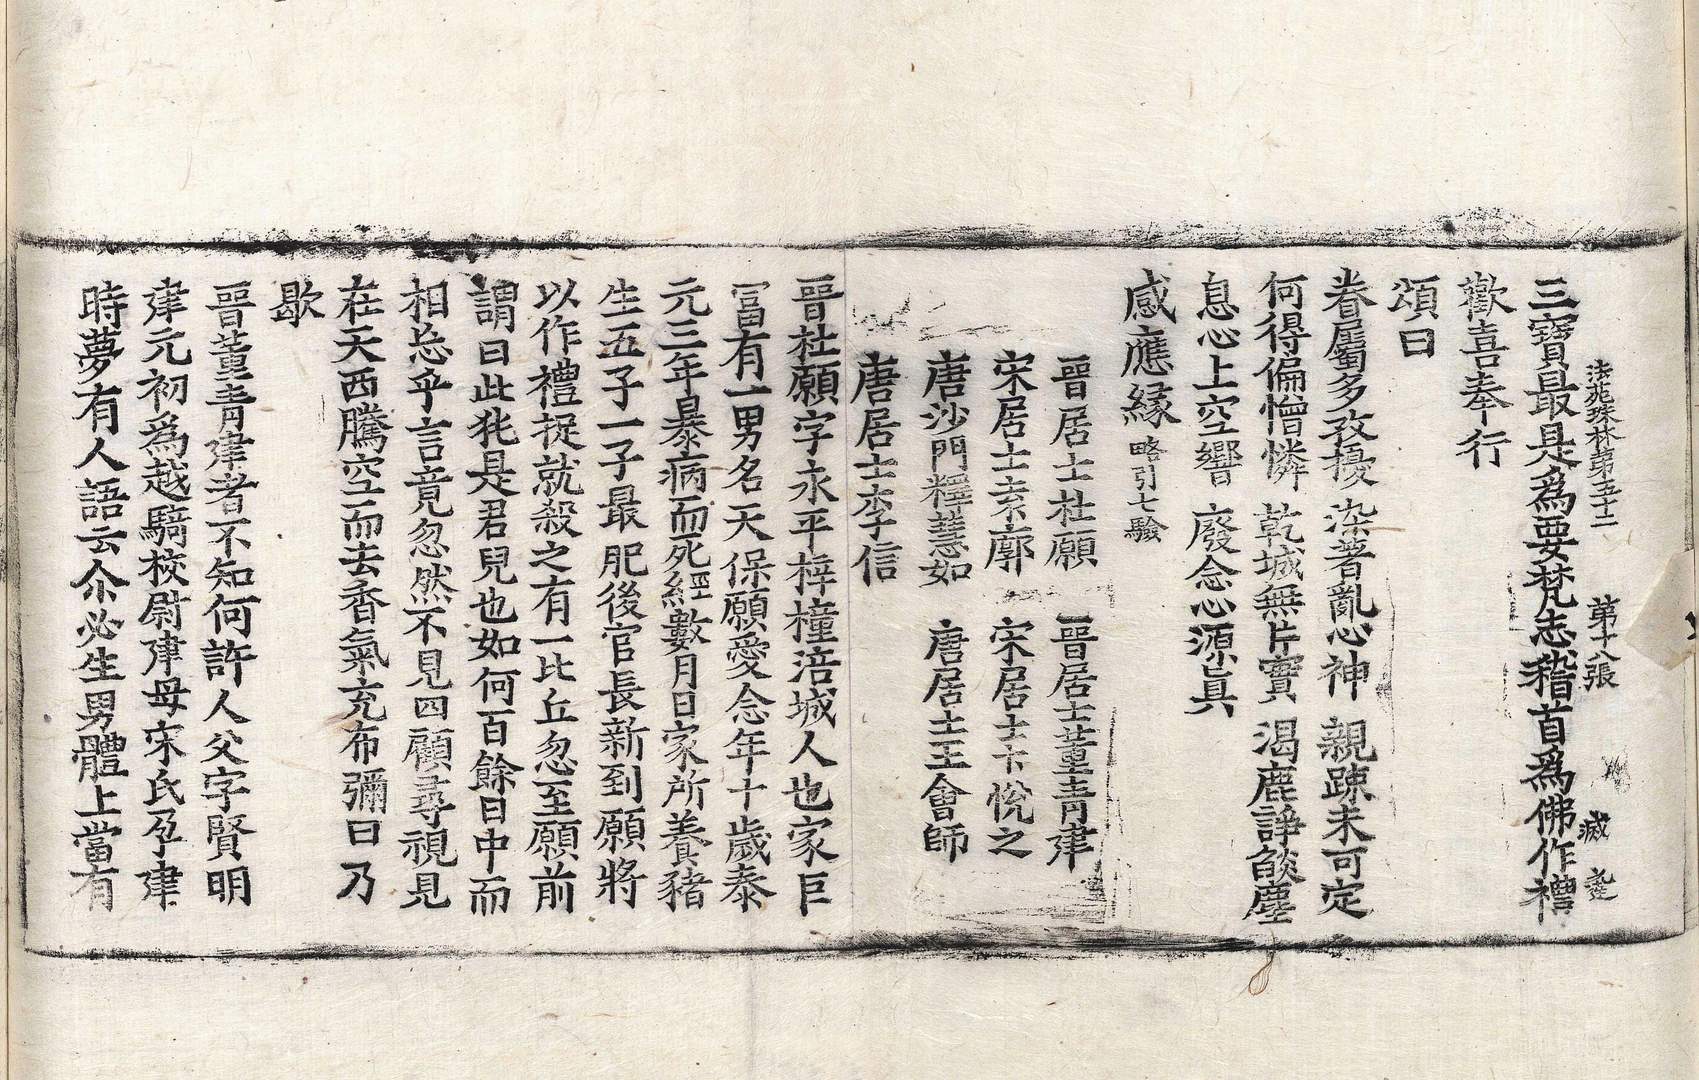 法苑珠林第五十二 第十八張 滅
三寶最是爲要梵志稽首爲佛作禮
歡喜奉行
頌曰
眷屬多孜擾 染著亂心神 親踈未可定
何得偏憎憐 乾城無片實 渴鹿諍燄塵
息心上空響 廢念心源眞
感應緣 略引七驗
晉居士杜願 晉居士董青建
宋居士袁廓 宋居士卞悅之
唐沙門釋慧如 唐居士王會師
唐居士李信
晉杜願字永平梓橦涪城人也家巨
富有一男名天保願愛念年十歲泰
元三年暴病而死經數月日家所養豬
生五子一子最肥後官長新到願將
以作禮捉就殺之有一比丘忽至願前
謂曰此㹠是君兒也如何百餘日中而
相忘乎言竟忽然不見四顧尋視見
在天西騰空而去香氣充布彌日乃
歇
晉董青建者不知何許人父字賢明
建元初爲越騎校尉建母宋氏孕建
時夢有人語云尒必生男體上當有